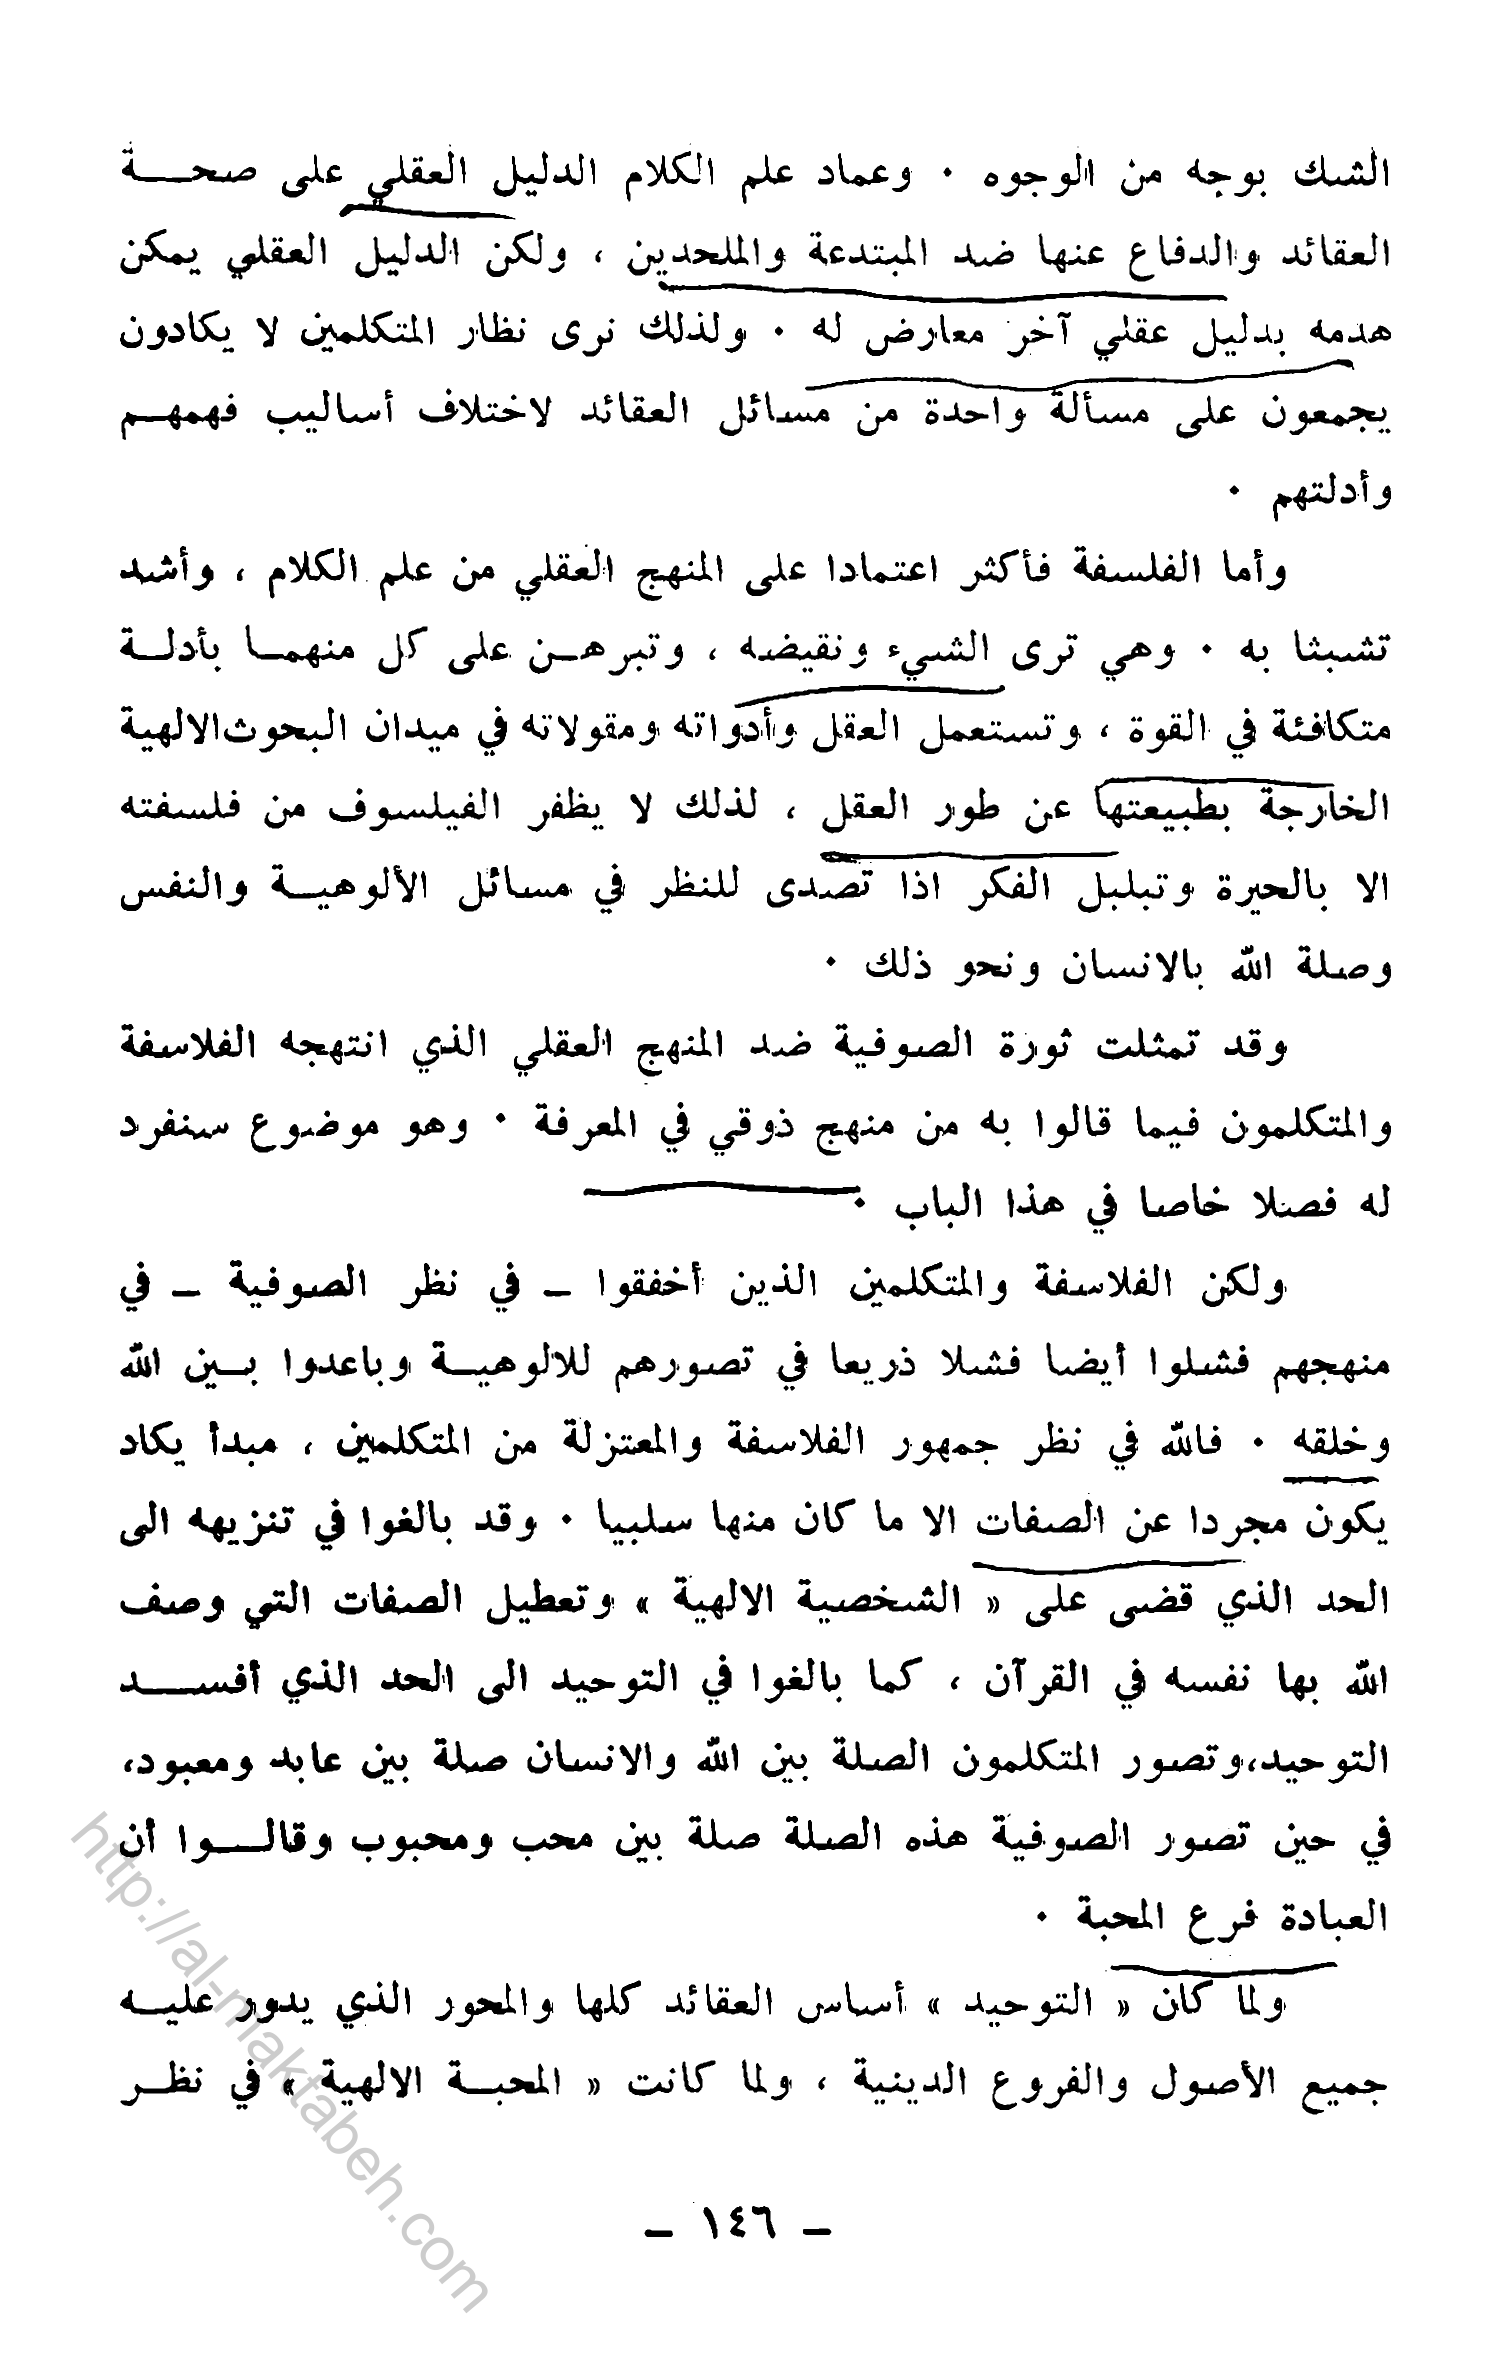 الشك بوجه من الوجوه . وعماد علم الكلام الدليل العقلي على صحة
العقائد والدفاع عنها ضد المبتدعة والملحدين ، ولكن الدليل العقلي يمكن
هدمه بدليل عقلي آخر معارض له . ولذلك نرى نظار المتكلمين لا يكادون
يجمعون على مسألة واحدة من مسائل العقائد لاختلاف أساليب فهمهم
وأدلتهم .
وأما الفلسفة فأكثر اعتمادا على المنهج العقلي من علم الكلام ، وأشد
تشبثا به . وهي ترى الشيء ونقيضه ، وتبرهن على كل منهما بأدلة
متكافئة في القوة ، وتستعمل العقل وأدواته ومقولاته في ميدان البحوث الالهية
الخارجة بطبيعتها عن طور العقل ، لذلك لا يظفر الفيلسوف من فلسفته
الا بالحيرة وتبلبل الفكر اذا تصدى للنظر في مسائل الألوهية والنفس
وصلة الله بالانسان ونحو ذلك .
وقد تمثلت ثورة الصوفية ضد المنهج العقلي الذي انتهجه الفلاسفة
والمتكلمون فيما قالوا به من منهج ذوقي في المعرفة . وهو موضوع سنفرد
له فصلا خاصا في هذا الباب .
ولكن الفلاسفة والمتكلمين الذين أخفقوا – في نظر الصوفية – في
منهجهم فشلوا أيضا فشلا ذريعا في تصورهم للالوهية وباعدوا بين الله
وخلقه . فالله في نظر جمهور الفلاسفة والمعتزلة من المتكلمين ، مبدأ يكاد
يكون مجردا عن الصفات الا ما كان منها سلبيا . وقد بالغوا في تنزيهه الى
الحد الذي قضى على « الشخصية الالهية » وتعطيل الصفات التي وصف
الله بها نفسه في القرآن ، كما بالغوا في التوحيد الى الحد الذي أفسد
التوحيد،وتصور المتكلمون الصلة بين الله والانسان صلة بين عابد ومعبود،
في حين تصور الصوفية هذه الصلة صلة بين محب ومحبوب وقالوا أن
العبادة فرع المحبة .
ولما كان « التوحيد » أساس العقائد كلها والمحور الذي يدور عليه
جميع الأصول والفروع الدينية ، ولما كانت « المحبة الالهية » في نظر
– ١٤٦ –
http://al-maktabeh.com